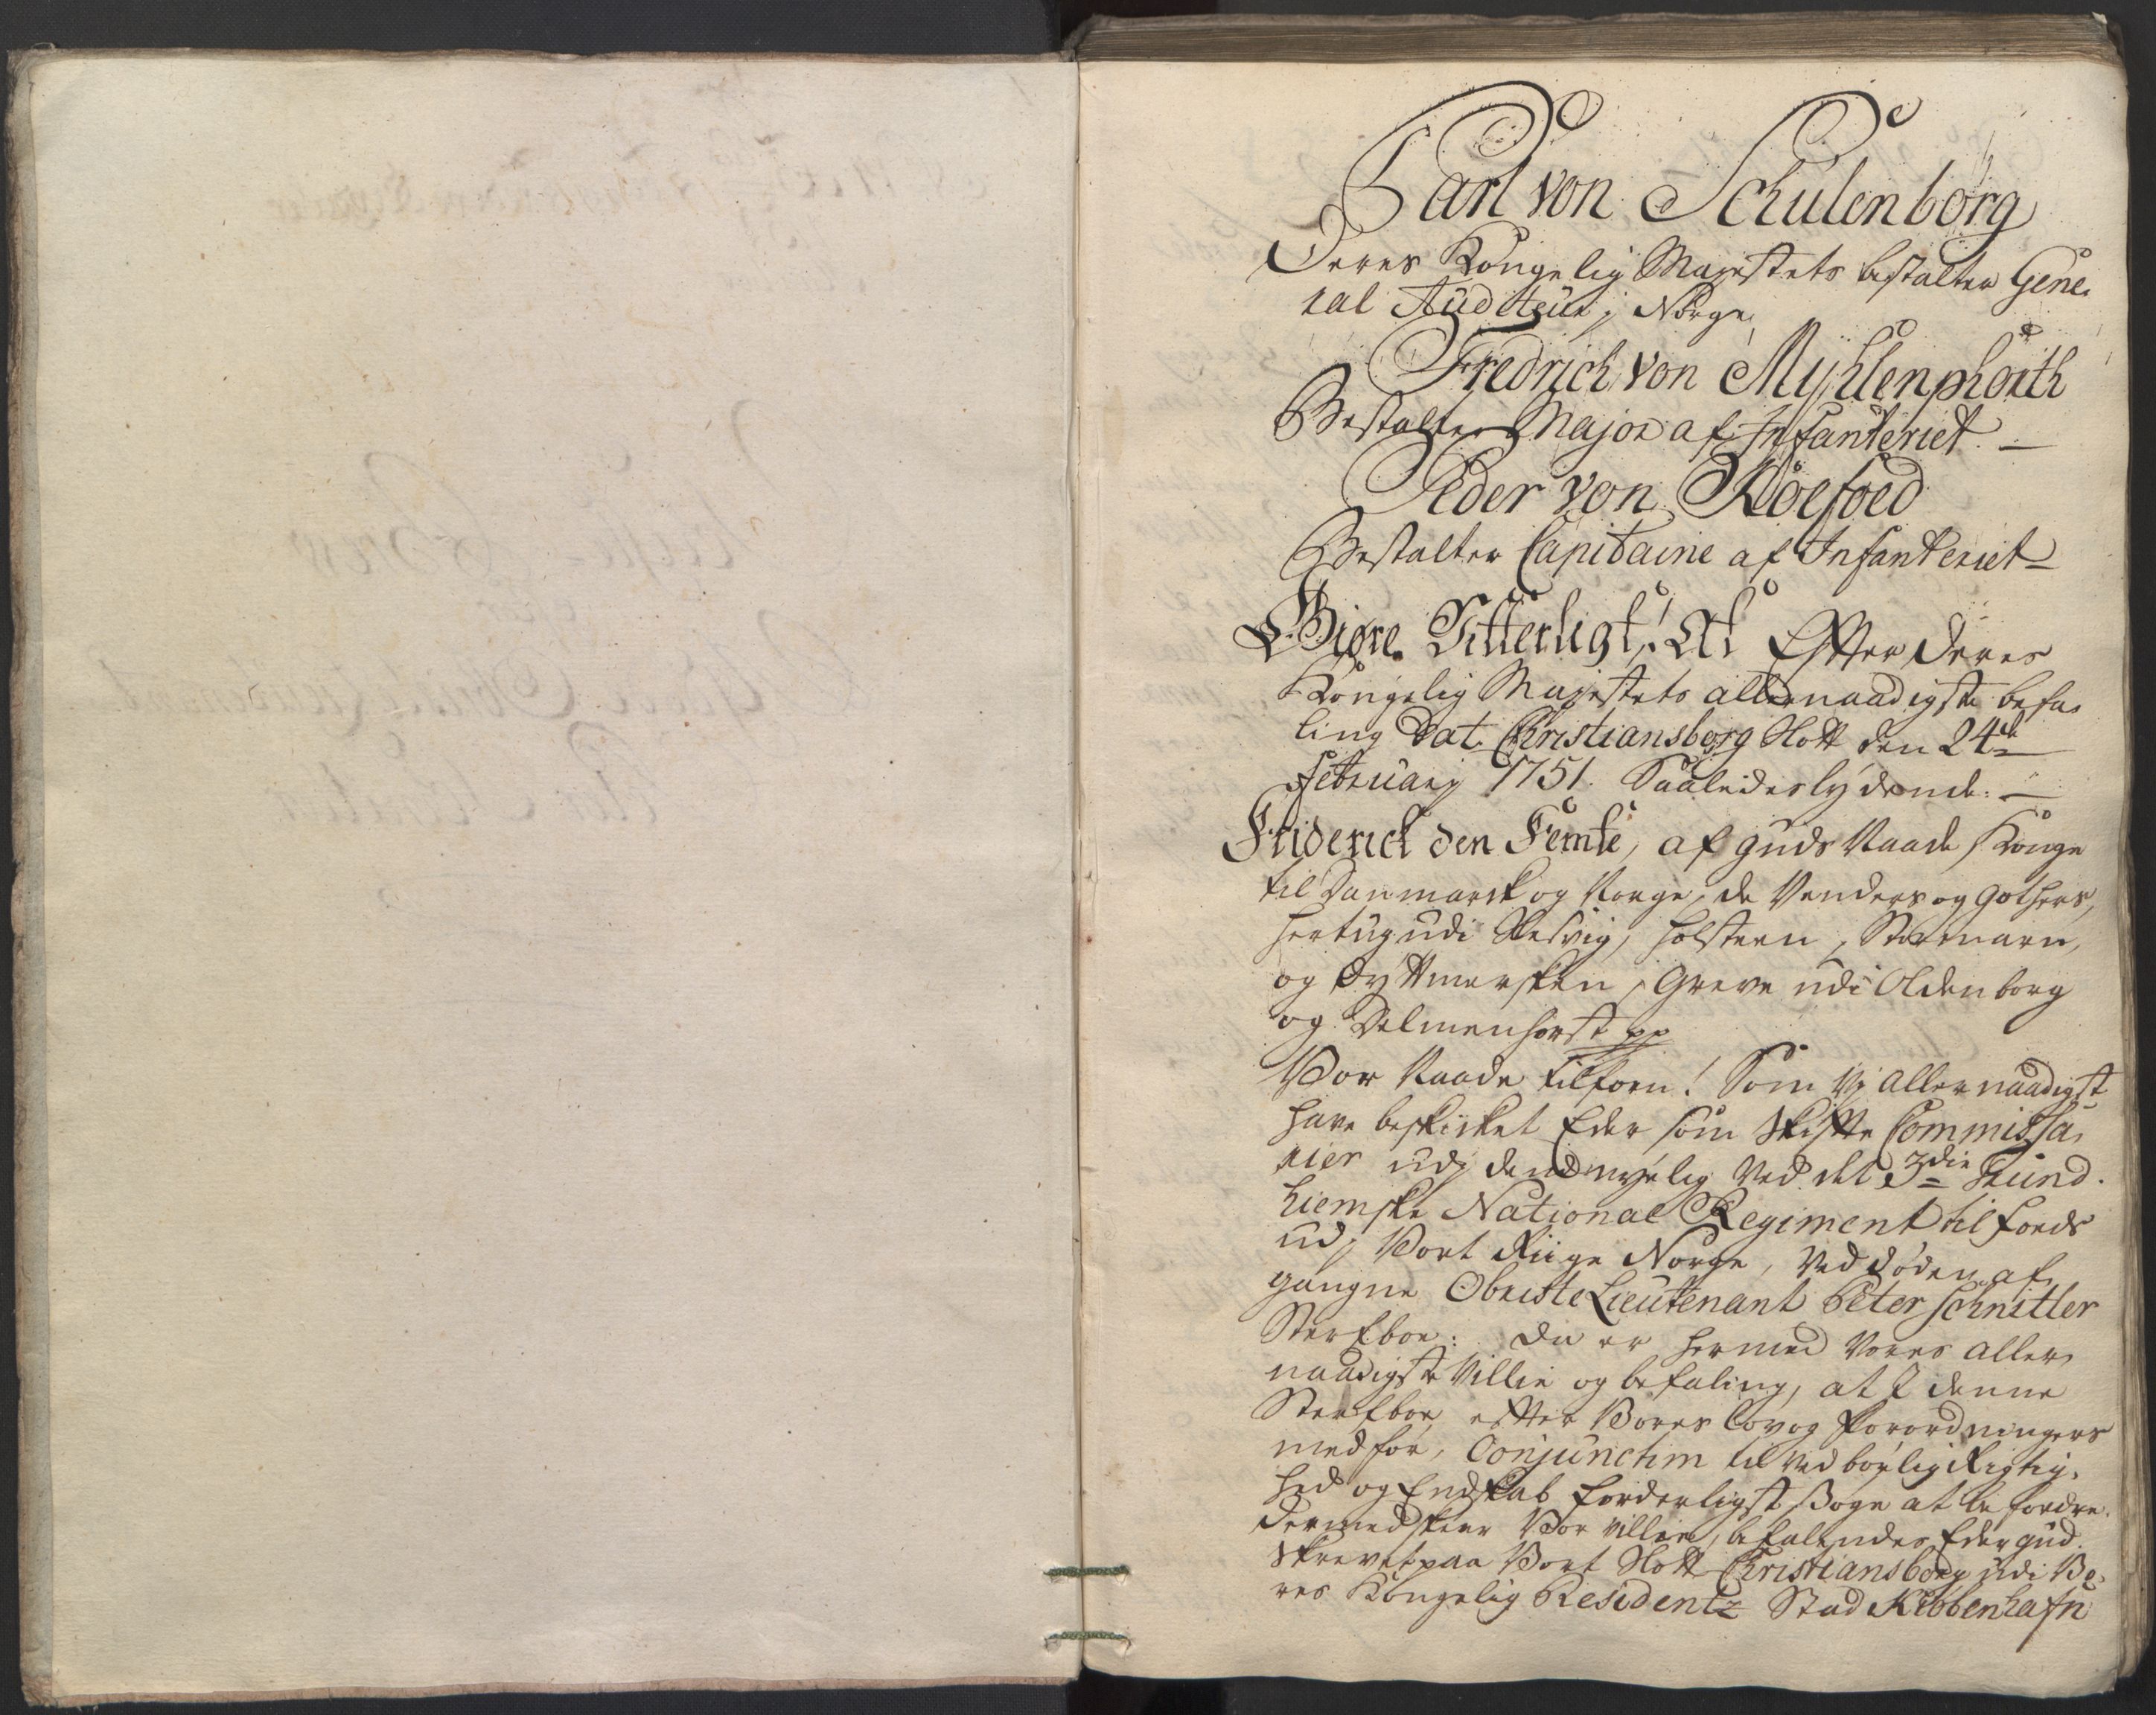 Carl von Schulenborg
Deres Kongelig Mayestets bestalter Gene,
ral Auditeur j Norge,
Fredrich von Myhlenphorth
Bestalter Major af Infanteriet. —
Peder von Koefoed
Bestalter Capitaine af Infanteriet —
Giøre Vitterligt, At Efter Deres
Kongelig Mayestets allernaadigste befa,
ling Dat. Christiansborg Slott den 24de
February 1751. Saaledes lydende: —
Friderich den Femte, af Guds Naade, Konge
til Danmark og Norge, de Venders og Gothers,
Hertug udi Slesvig, Holsteen, Stormarn,
og Dyttmersken, Greve udi Oldenborg
og Delmenhorst pp
Vor Naade tilforn! Som Vj allernaadigst
have beskikket Eder som Skifte Commissa,
rier udj dend nyelig Ved det 3die Trund,
hiemske National Regiment til Foeds
udj Vort Riige Norge, Ved Døden af,
gangne Obriste Lieutenant Peter Schnitler
Sterfboe: Da er hermed Vores aller,
naadigste Villie og befaling, at I denne
Sterfboe efter Vores Lov og Forordningers
medfør, Conjunctim til Ved børlig Rigtig,
hed og Endskab forderligst Søge at befordre.
Dermed skeer Vor Villie, befalendes Eder Gud.
Skrevet paa Vort Slott Christiansborg udi Vo,
res Kongelig Residentz Stad Kiøbenhafn